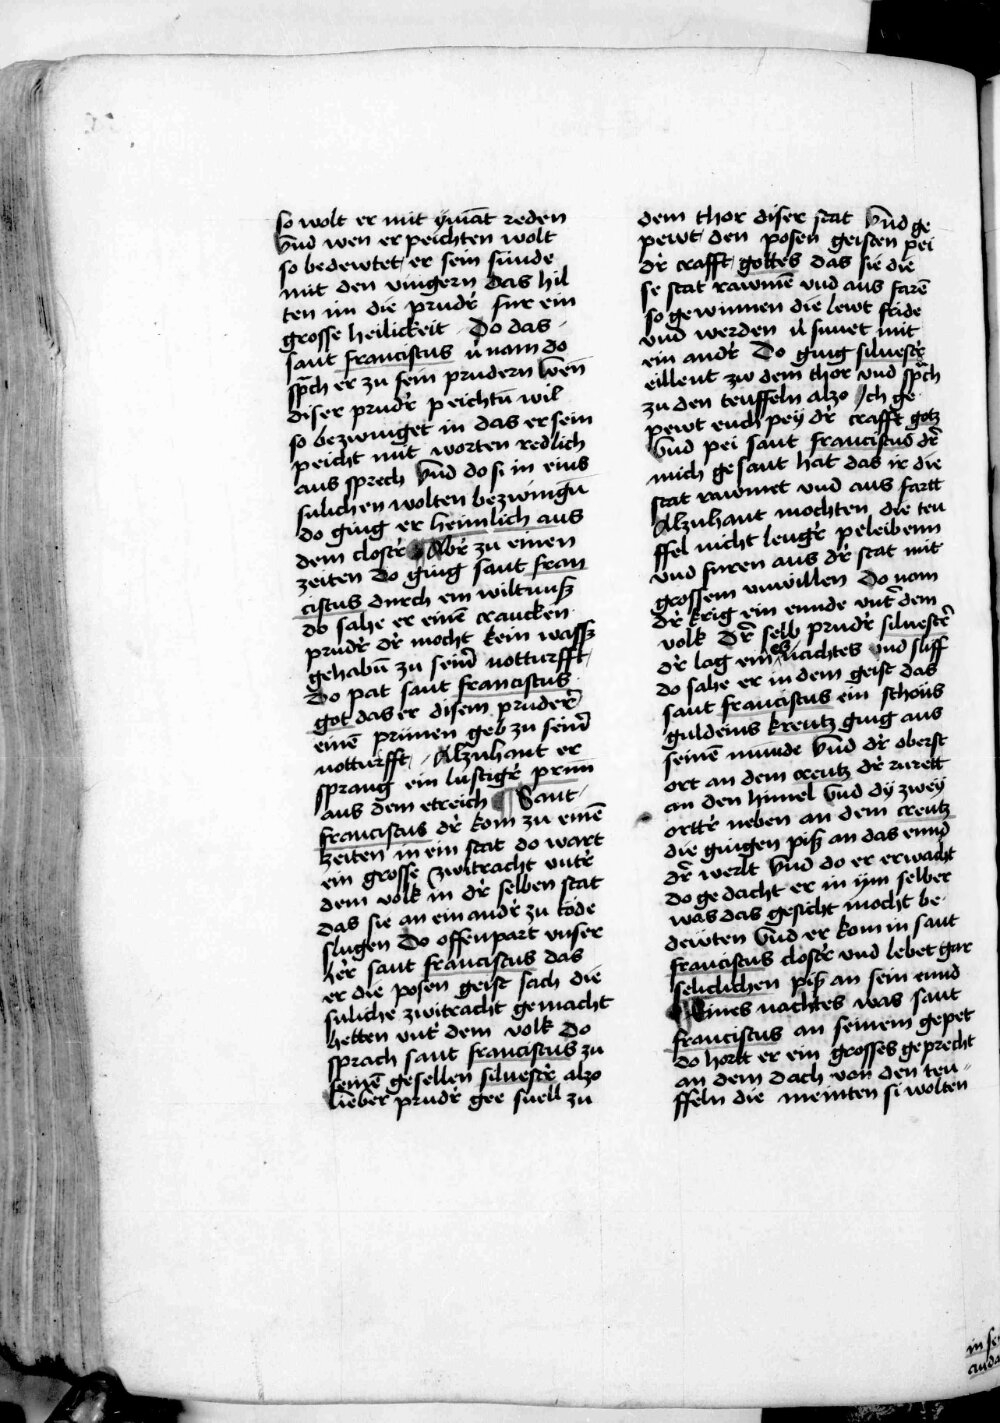 so wolt er mit ymāt reden
Vnd wen er peichten wolt
so bedewtet er sein sünde
mit den vingern das hil
ten im die prud͛r fur ein
grosse heilickeit · Do das
sant franciscus ū nam do
sp̄ch er zu sein prudern wen̄
diser prud͛r peichtn̄ wil
so bezwinget in das er sein
peicht mit worten redlich
aus sprech Vnd do si in eins
sulichen wolten bezwingn̄
do ging er heimlich aus
dem clost͛r Ab͛r zu einen
zeiten Do ging sant fran
ciscus durch ein wiltnuß
do sahe er einē crancken
prud͛r d͛r mocht kein wass͛
gehabn̄ zu sein͛ notturfft
Do pat sant franciscus
got das er disem pruder͛
einē prunen geb zu sein͛
notturfft Alzuhant er
sprang ein lustig͛r prun̄
aus dem etreich ¶ Sant
franciscus d͛r kom zu einē
zeiten in ein stat do wart
ein grosse zwitracht vnt͛r
dem volk in d͛r selben stat
das sie an ein and͛r zu tode
slugen Do offenpart vnser
h͛er sant franciscus das
er die posen geist sach die
suliche zwitracht gemacht
hetten vnt͛ dem volk Do
sprach sant franciscus zu
seinē gesellen siluest͛r alzo
lieber prud͛r gee snell zu
dem thor diser stat Vnd ge
pewt den posen geisten pei
d͛r crafft gottes das sie die
se stat rawmē vnd aus farē
so gewinnen die lewt fride
vnd werden ū sunet mit
ein and͛r Do ging siluest͛r
eillent zw dem thor vnd sp̄ch
zu den teuffeln alzo Jch ge
pewt euch pey d͛r crafft gotz
Vnd pei sant franciscus d͛r
mich gesant hat das ir die
stat rawmet vnd aus fartt
Alzuhant mochten die teu
ffel nicht leng͛r peleibenn
vnd furen aus d͛r stat mit
grossem vnwillen Do nam
d͛r krig ein ennde vnt͛ dem
volk D͛r selb prud͛r siluest͛r
d͛r lag eines nachtes vnd sliff
do sahe er in dem geist das
sant franciscus ein schons
guldeins kreutz ging aus
seinē munde Vnd d͛r oberst
ort an dem creutz d͛r rurett
an den himel Vnd dy zwey
ortt͛r neben an dem creutz
die gingen piß an das ennd
d͛r werlt Vnd do er erwacht
Do gedacht er in ym selber
was das gesicht mocht be
dewten Vnd er kom in sant
franciscus clost͛r vnd lebet gar
seliclichen piß an sein ennd
¶ Eines nachtes was sant
franciscus an seinem gepet
do hortt er ein grosses geprecht
an dem dach von den teu
ffeln die meinten si wolten